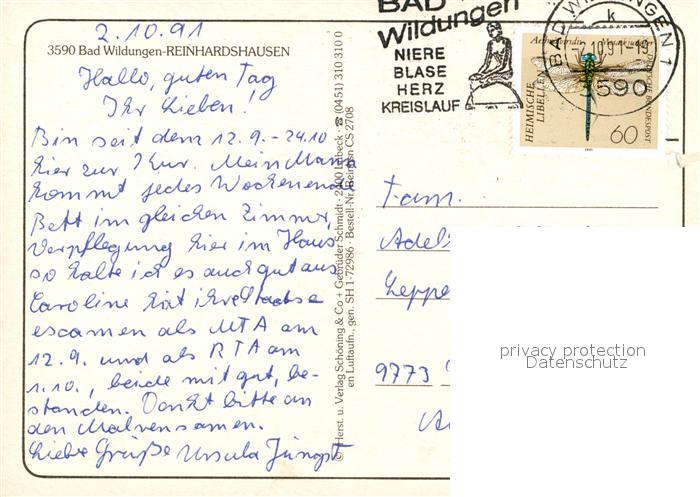 2.10.91
3590 Bad Wildungen-REINHARDSHAUSEN
Hallo, guten Tag
Ihr Lieben!
Bin seit dem 12.9.-24.10
hier zur Kur. Mein Mann
kommt jedes Wochenende
Bett im gleichen Zimmer,
Verpflegung hier im Haus
so halte ich es auch gut aus
Caroline hat ihre
escamen als MTA am
12.9. und als RTA am
1.10., beide mit gut, be-
standen. Denkt bitte an
den Malvensamen.
Liebe Grüße Ursula Jüngst
© Herst. u. Verlag Schöning & Co + Gebrüder Schmidt · 2400 Lübeck · ☎ (0451) 310 310 0
en Luftaufn., gen. SH 1-72986 · Bestell-Nr. Reinhsn CS 2708
BAD
Wildungen
NIERE
BLASE
HERZ
KREISLAUF
BAD WILDUNGEN 1
k
10.91-19
3590
HEIMISCHE
LIBELLEN
DEUTSCHE BUNDESPOST
60
Fam.
Adel
Zeppe
9773
privacy protection
Datenschutz